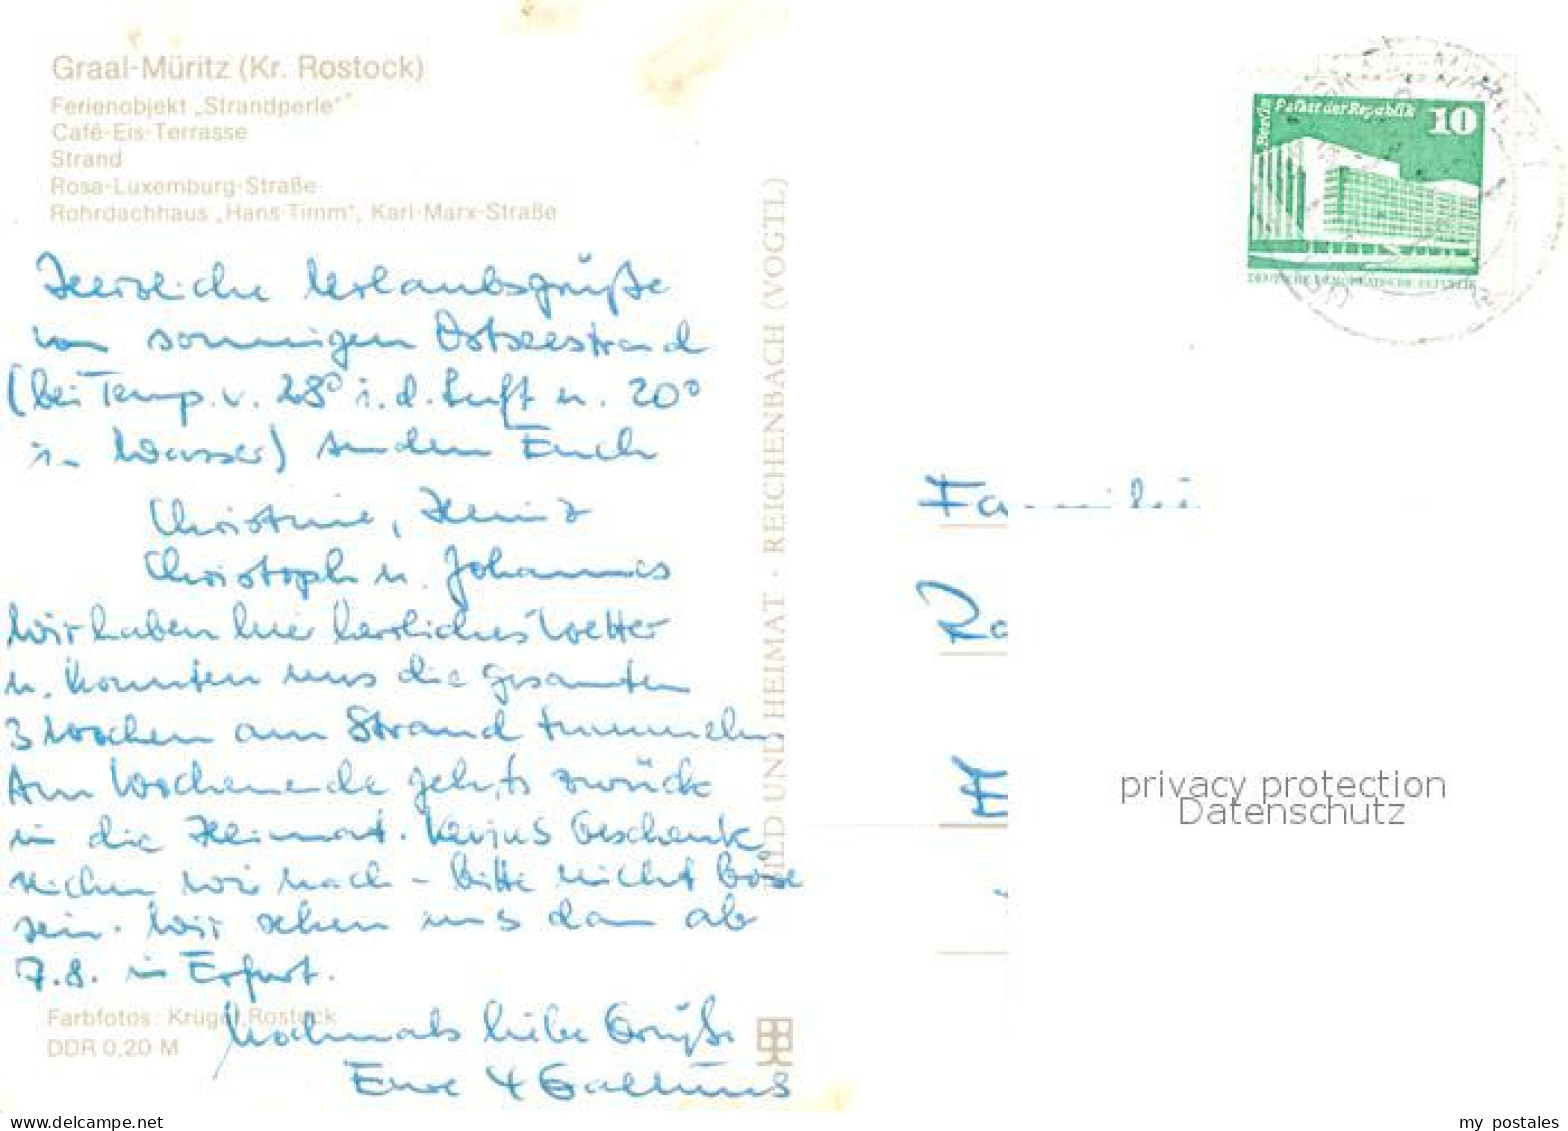 Graal-Müritz (Kr. Rostock)
Ferienobjekt „Strandperle"
Café-Eis-Terrasse
Strand
Rosa-Luxemburg-Straße
Rohrdachhaus „Hans Timm", Karl-Marx-Straße
Herzliche Urlaubsgrüße
vom sonnigen Ostseestrand
(bei Temp. v. 28° i. d. Luft u. 20°
im Wasser) senden Euch
Christine, Heinz
Christoph u. Johannes
Wir haben hier herrliches Wetter
u. konnten uns die gesamten
3 Wochen am Strand tummeln.
Am Wochenende geht's zurück
in die Heimat. Geschenk
reichen wir nach - bitte nicht böse
sein. Wir sehen uns dann ab
7.8. in Erfurt.
Nochmals liebe Grüße
Eure 4
Farbfotos: Krüger, Rostock
DDR 0,20 M
BILD UND HEIMAT · REICHENBACH (VOGTL)
Berlin Palast der Republik 10
DEUTSCHE DEMOKRATISCHE REPUBLIK
Familie
privacy protection
Datenschutz
my_postales